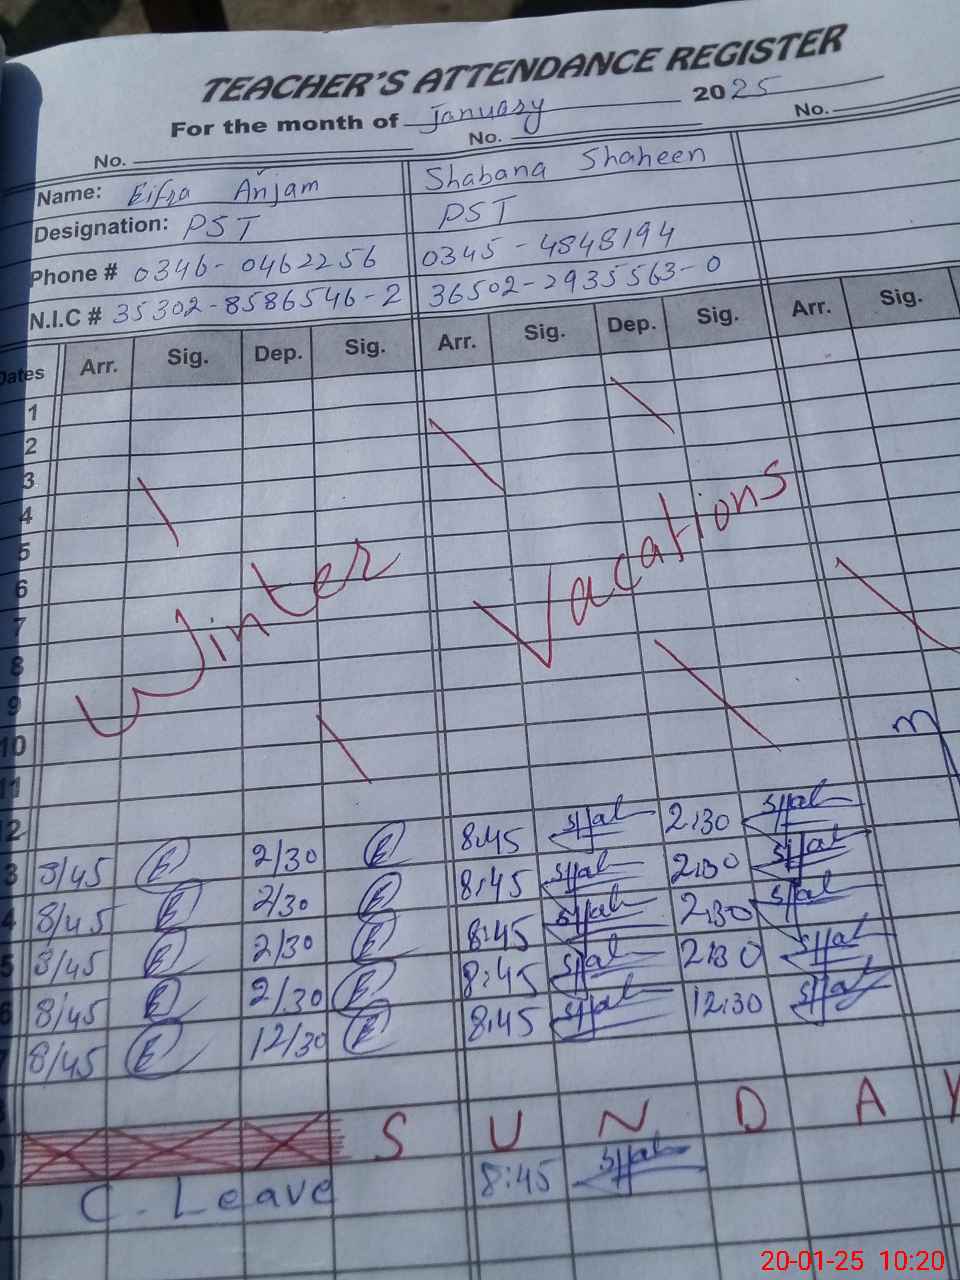 TEACHER'S ATTENDANCE REGISTER
For the month of January 2025
No. No. No.
Name: Eifza Anjam Shabana Shaheen
Designation: PST PST
Phone # 0346-0462256 0345-4848194
N.I.C # 35302-8586546-2 36502-2935563-0
Dates Arr. Sig. Dep. Sig. Arr. Sig. Dep. Sig. Arr. Sig.
1
2
3
4
5
6
7
8
9
10
11
Winter Vacations
2
3 8/45 E 2/30 E 8:45 2:30
4 8/45 E 2/30 E 8:45 2:30
5 8/45 E 2/30 E 8:45 2:30
6 8/45 E 2/30 E 8:45 2:30
7 8/45 E 12/30 E 8:45 12:30
S U N D A Y
C. Leave 8:45
20-01-25 10:20